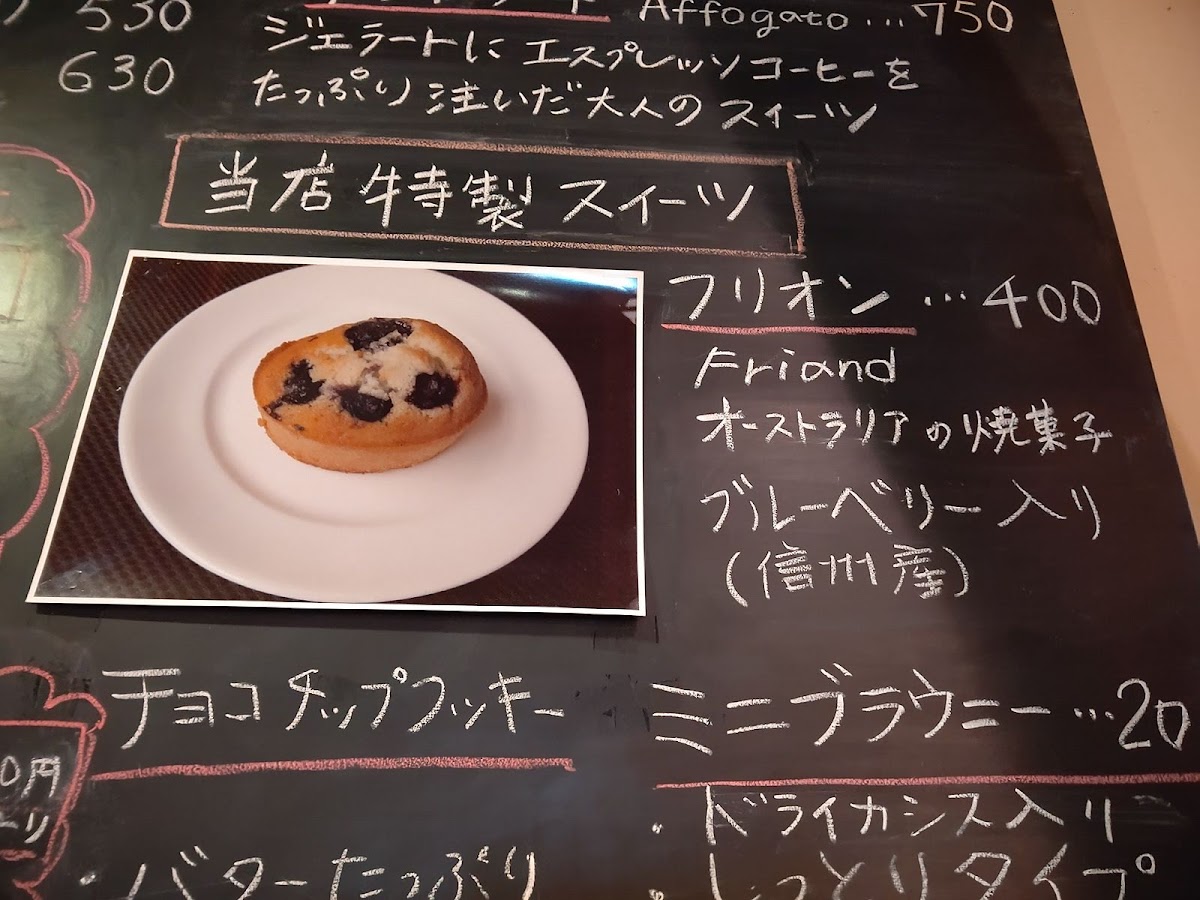 530
630
Affogato…750
ジェラートにエスプレッソコーヒーを
たっぷり注いだ大人のスイーツ
当店特製スイーツ
フリオン…400
Friand
オーストラリアの焼菓子
ブルーベリー入り
(信州産)
チョコチップクッキー
ミニブラウニー…20
・ドライカシス入り
・しっとりタイプ
・バターたっぷり
0円
り